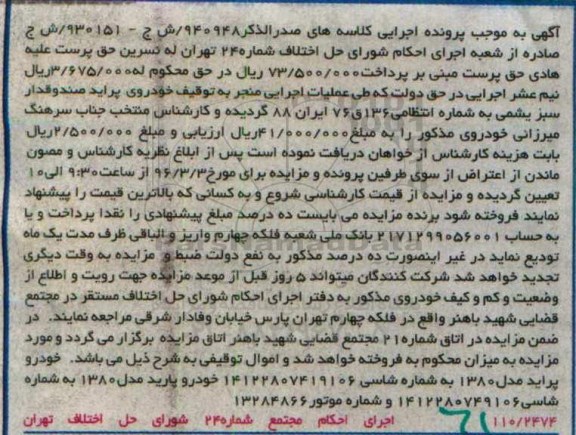 آگهی به موجب پرونده اجرایی کلاسه های صدرالذکر۹۴۰۹۴۸/ش ج - ۹۳۰۱۵۱/ش ج
صادره از شعبه اجرای احکام شورای حل اختلاف شماره۲۴ تهران له نسرین حق پرست علیه
هادی حق پرست مبنی بر پرداخت۷۳/۵۰۰/۰۰۰ ریال در حق محکوم له۳/۶۷۵/۰۰۰ریال
نیم عشر اجرایی در حق دولت که طی عملیات اجرایی منجر به توقیف خودروی پراید صندوقدار
سبز یشمی به شماره انتظامی۱۳۶ق۷۶ ایران ۸۸ گردیده و کارشناس منتخب جناب سرهنگ
میرزانی خودروی مذکور را به مبلغ۴۱/۰۰۰/۰۰۰ریال ارزیابی و مبلغ ۲/۵۰۰/۰۰۰ریال
بابت هزینه کارشناس از خواهان دریافت نموده است پس از ابلاغ نظریه کارشناس و مصون
ماندن از اعتراض از سوی طرفین پرونده و مزایده برای مورخ۹۶/۳/۳ از ساعت۹:۳۰ الی۱۰
تعیین گردیده و مزایده از قیمت کارشناسی شروع و به کسانی که بالاترین قیمت را پیشنهاد
نمایند فروخته شود برنده مزایده می بایست ده درصد مبلغ پیشنهادی را نقدا پرداخت و یا
به حساب ۲۱۷۱۲۹۹۰۵۶۰۰۱ بانک ملی شعبه فلکه چهارم واریز و الباقی ظرف مدت یک ماه
تودیع نماید در غیر اینصورت ده درصد مذکور به نفع دولت ضبط و مزایده به وقت دیگری
تجدید خواهد شد شرکت کنندگان میتواند ۵ روز قبل از موعد مزایده جهت رویت و اطلاع از
وضعیت و کم و کیف خودروی مذکور به دفتر اجرای احکام شورای حل اختلاف مستقر در مجتمع
قضایی شهید باهنر واقع در فلکه چهارم تهران پارس خیابان وفادار شرقی مراجعه نمایند. در
ضمن مزایده در اتاق شماره۲۱ مجتمع قضایی شهید باهنر اتاق مزایده برگزار می گردد و مورد
مزایده به میزان محکوم به فروخته خواهد شد و اموال توقیفی به شرح ذیل می باشد. خودرو
پراید مدل۱۳۸۰ به شماره شاسی ۱۴۱۲۲۸۰۷۴۱۹۱۰۶ خودرو پارید مدل۱۳۸۰ به شماره
شاسی۱۴۱۲۲۸۰۷۴۹۱۰۶ و شماره موتور۱۳۲۸۴۸۶۶
۱۱۰/۲۴۷۴ اجرای احکام مجتمع شماره۲۴ شورای حل اختلاف تهران